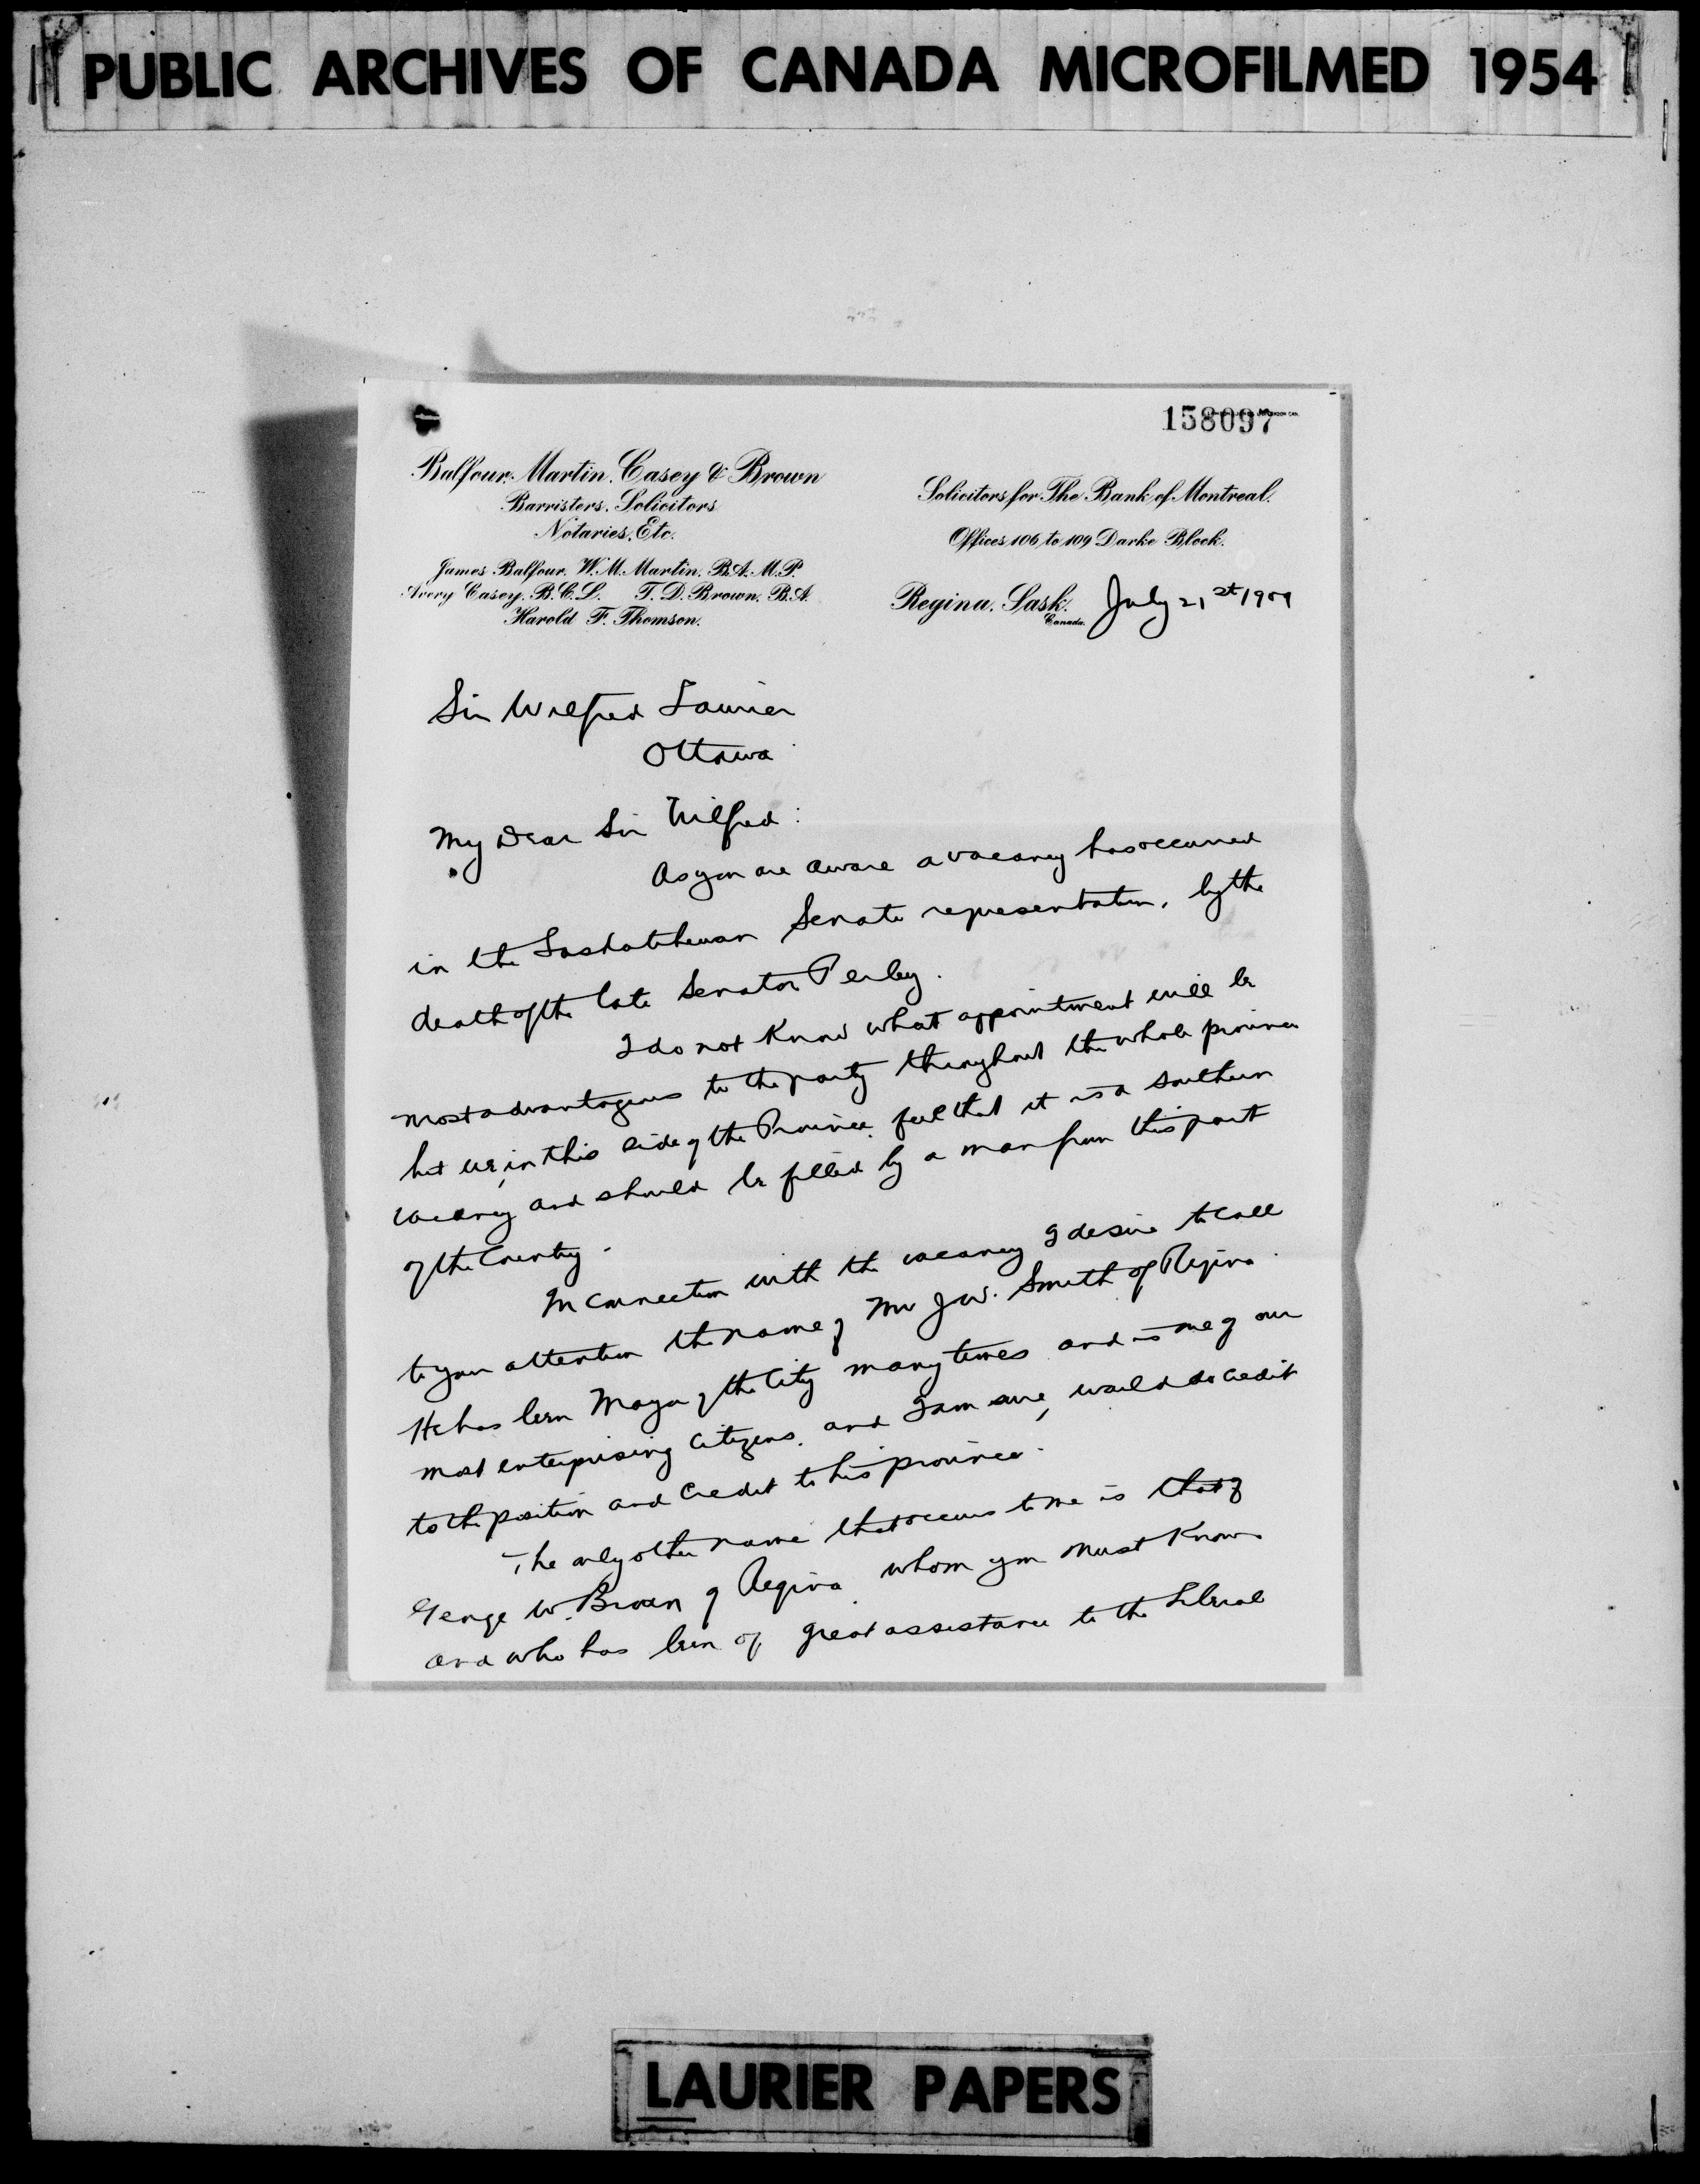 PUBLIC ARCHIVES OF CANADA MICROFILMED 1954
158097
Balfour, Martin, Casey & Brown
Barristers, Solicitors
Notaries, Etc.
James Balfour. W. M. Martin. B.A. M.P.
Avery Casey, B.C.L. T. D. Brown. B.A.
Harold F. Thomson.
Solicitors for The Bank of Montreal.
Offices 106 to 109 Darke Block.
Regina, Sask. July 21st 1909
Canada.
Sir Wilfred Laurier
Ottawa
My Dear Sir Wilfred:
As you are aware a vacancy has occurred
in the Saskatchewan Senate representation, by the
death of the late Senator Perley.
I do not know what appointment will be
most advantageous to the party throughout the whole province
but we, in this side of the Province feel that it is a Southern
vacancy and should be filled by a man from this part
of the Country.
In connection with the vacancy I desire to call
to your attention the name of Mr J.W. Smith of Regina.
He has been Mayor of the City many times and is one of our
most enterprising citizens. and I am sure, would do credit
to the position and credit to his province.
The only other name that occurs to me is that of
George W. Brown of Regina whom you must know
and who has been of great assistance to the Liberal
LAURIER PAPERS